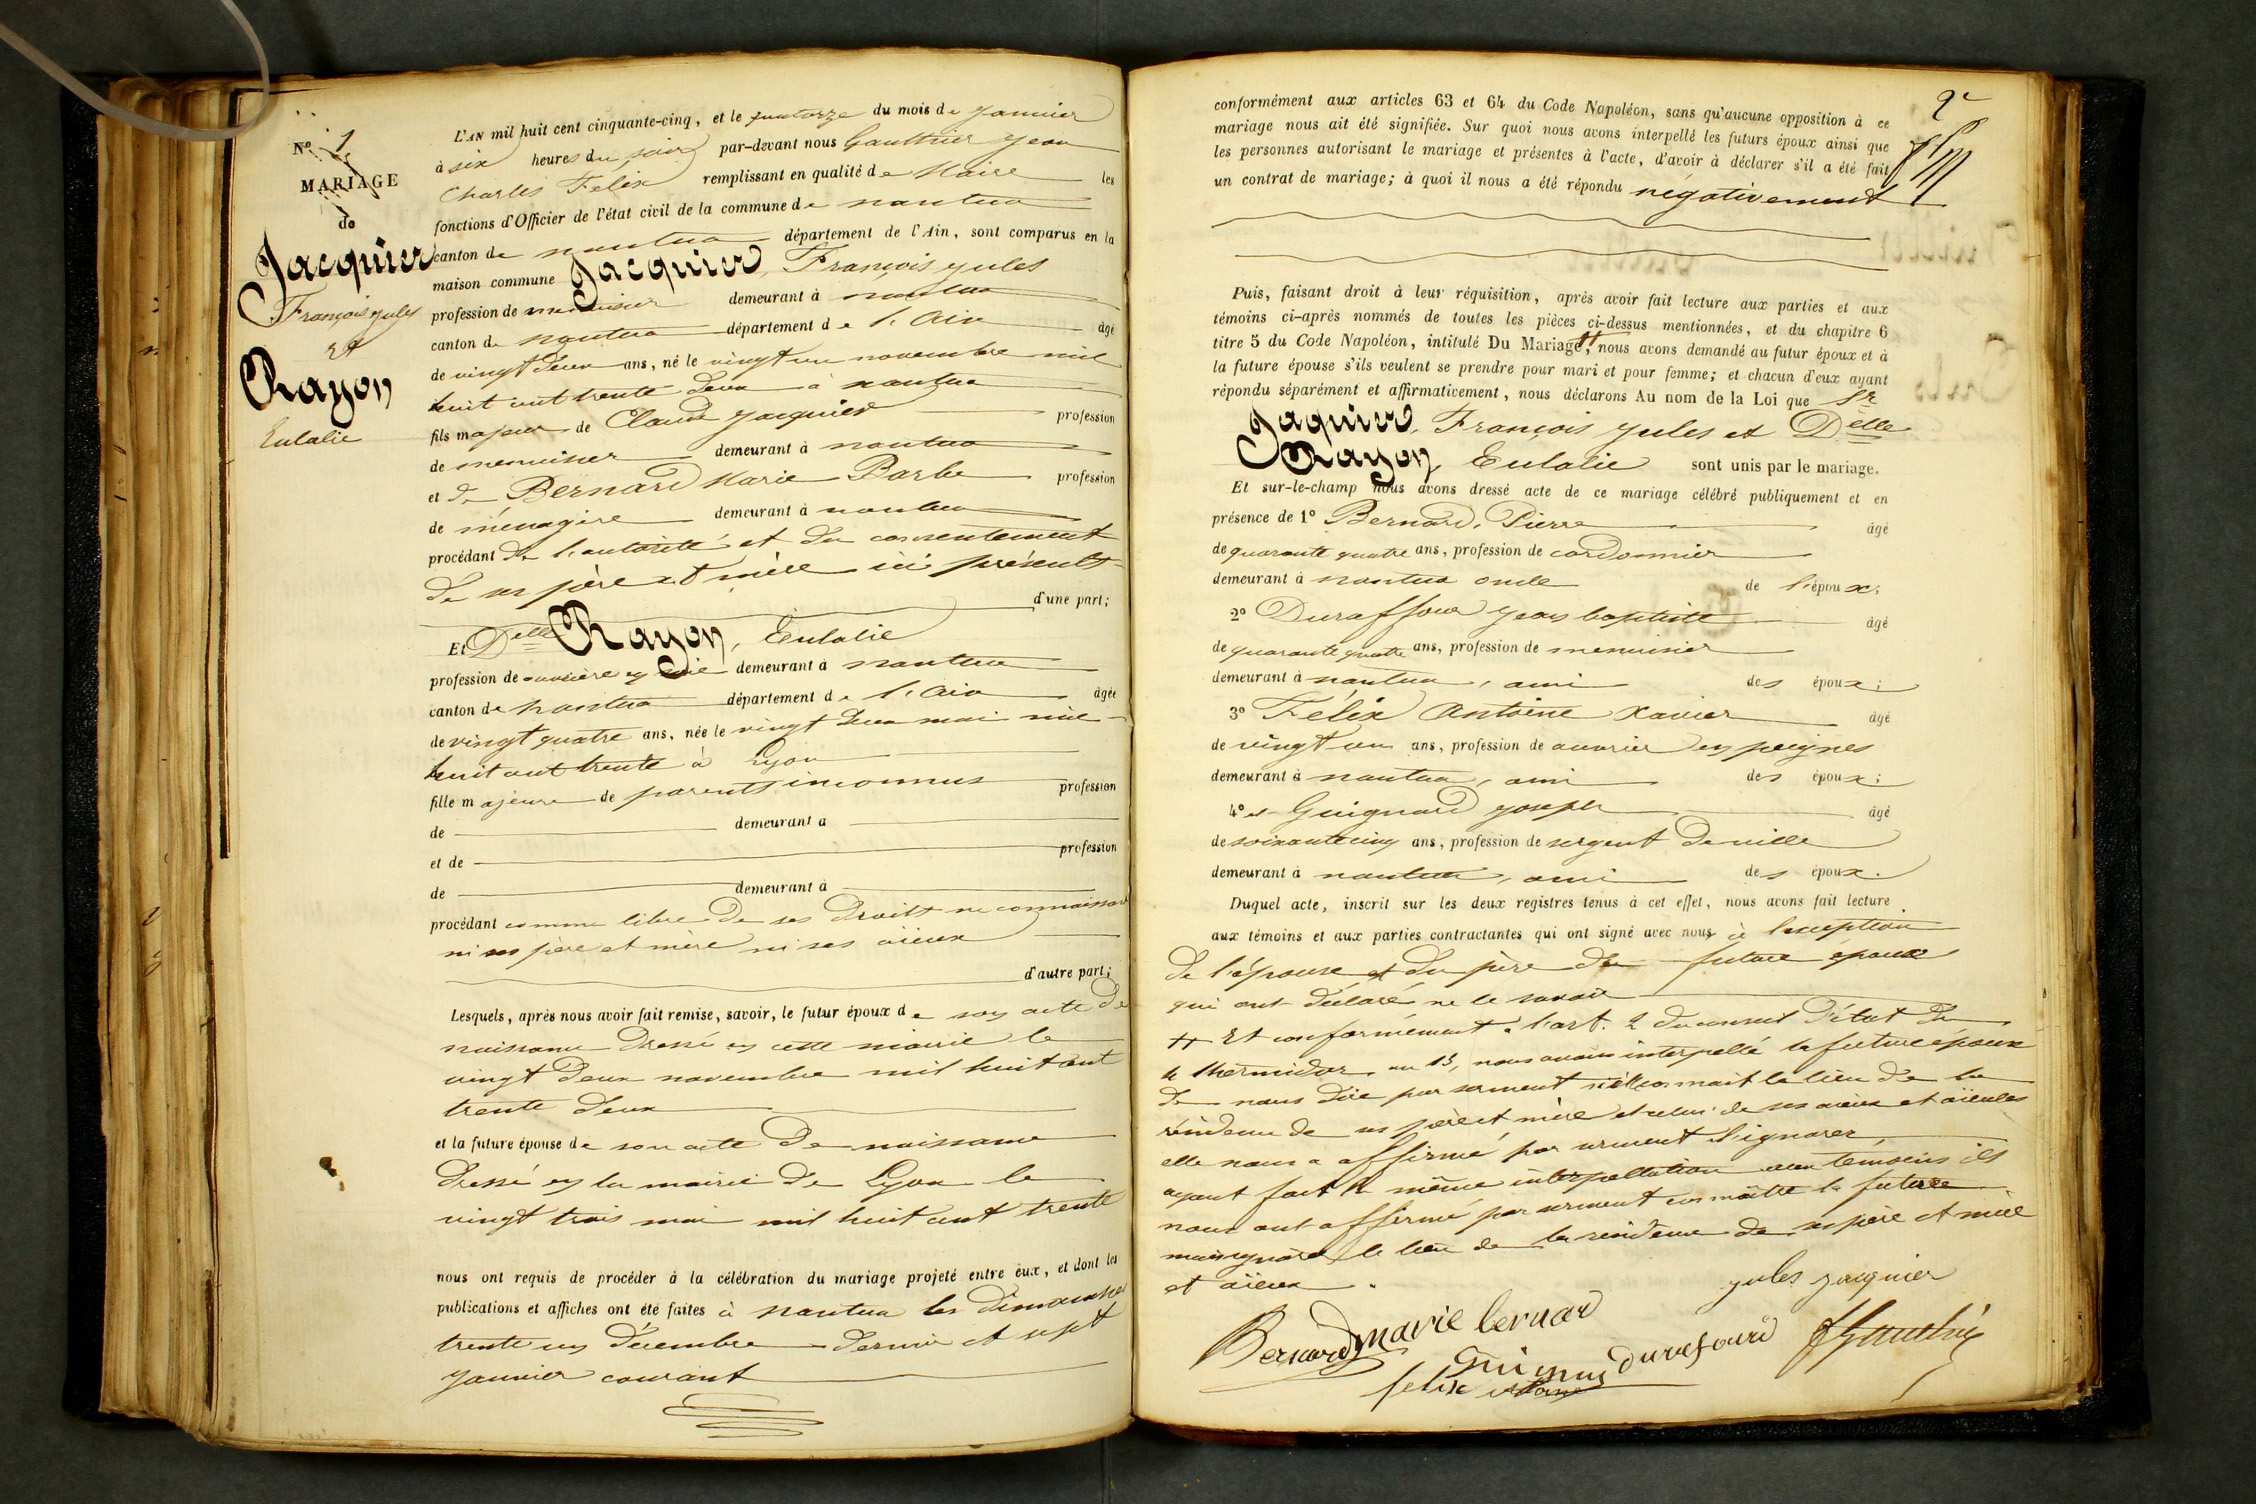 No 1
MARIAGE
de
Jacquier
François Jules
et
Rayon
Eulalie
L'AN mil huit cent cinquante-cinq, et le quatorze du mois de Janvier
à six heures du soir par-devant nous Gauthier Jean
Charles Félix remplissant en qualité de Maire les
fonctions d'Officier de l'état civil de la commune de nantua
canton de nantua département de l'Ain, sont comparus en la
maison commune Jacquier, François Jules
profession de menuisier demeurant à nantua
canton de nantua département de l'Ain âgé
de vingt deux ans, né le vingt un novembre mil
huit cent trente deux à nantua
fils majeur de Claude Jacquier profession
de menuisier demeurant à nantua
et de Bernard Marie Barbe profession
de ménagère demeurant à nantua
procédant de l'autorité et du consentement
de ses père et mère ici présents
d'une part;
Et Delle Rayon, Eulalie
profession de ouvrière en soie demeurant à nantua
canton de nantua département de l'Ain âgée
de vingt quatre ans, née le vingt deux mai mil
huit cent trente à Lyon
fille majeure de parents inconnus profession
de demeurant à
et de profession
de demeurant à
procédant comme libre de ses droits ne connaissant
ni ses père et mère ni ses aïeux
d'autre part;
Lesquels, après nous avoir fait remise, savoir, le futur époux de son acte de
naissance dressé en cette mairie le
vingt deux novembre mil huit cent
trente deux
et la future épouse de son acte de naissance
dressé en la mairie de Lyon le
vingt trois mai mil huit cent trente
nous ont requis de procéder à la célébration du mariage projeté entre eux, et dont les
publications et affiches ont été faites à nantua les Dimanches
trente un décembre dernier et sept
Janvier courant
2e
conformément aux articles 63 et 64 du Code Napoléon, sans qu'aucune opposition à ce
mariage nous ait été signifiée. Sur quoi nous avons interpellé les futurs époux ainsi que
les personnes autorisant le mariage et présentes à l'acte, d'avoir à déclarer s'il a été fait
un contrat de mariage; à quoi il nous a été répondu négativement
Puis, faisant droit à leur réquisition, après avoir fait lecture aux parties et aux
témoins ci-après nommés de toutes les pièces ci-dessus mentionnées, et du chapitre 6
titre 5 du Code Napoléon, intitulé Du Mariage, nous avons demandé au futur époux et à
la future épouse s'ils veulent se prendre pour mari et pour femme; et chacun d'eux ayant
répondu séparément et affirmativement, nous déclarons Au nom de la Loi que Sr
Jaquier, François Jules et Delle
Rayon, Eulalie sont unis par le mariage.
Et sur-le-champ nous avons dressé acte de ce mariage célébré publiquement et en
présence de 1° Bernard, Pierre âgé
de quarante quatre ans, profession de cordonnier
demeurant à nantua oncle de l'époux;
2° Duraffour Jean baptiste âgé
de quarante quatre ans, profession de menuisier
demeurant à nantua, ami des époux;
3° Félix Antoine Xavier âgé
de vingt un ans, profession de ouvrier en peignes
demeurant à nantua, ami des époux;
4° et Guignard Joseph âgé
de soixante cinq ans, profession de sergent de ville
demeurant à nantua, ami des époux.
Duquel acte, inscrit sur les deux registres tenus à cet effet, nous avons fait lecture
aux témoins et aux parties contractantes qui ont signé avec nous à l'exception
de l'épouse et du père du future époux
qui ont déclaré ne le savoir
++ Et conformément à l'art. 2 du conseil d'état du
4 thermidor an 13, nous avons interpellé la future épouse
de nous dire par serment si elle connait le lieu de la
résidence de ses père et mère et celui de ses aïeux et aïeules
elle nous a affirmé par serment l'ignorer
ayant fait la même interpellation aux témoins ils
nous ont affirmé par serment connaître la future
mais ignorer le lieu de la résidence de ses père et mère
et aïeux.
Jules Jacquier
Bernard marie bernard
Duraffourd
felix